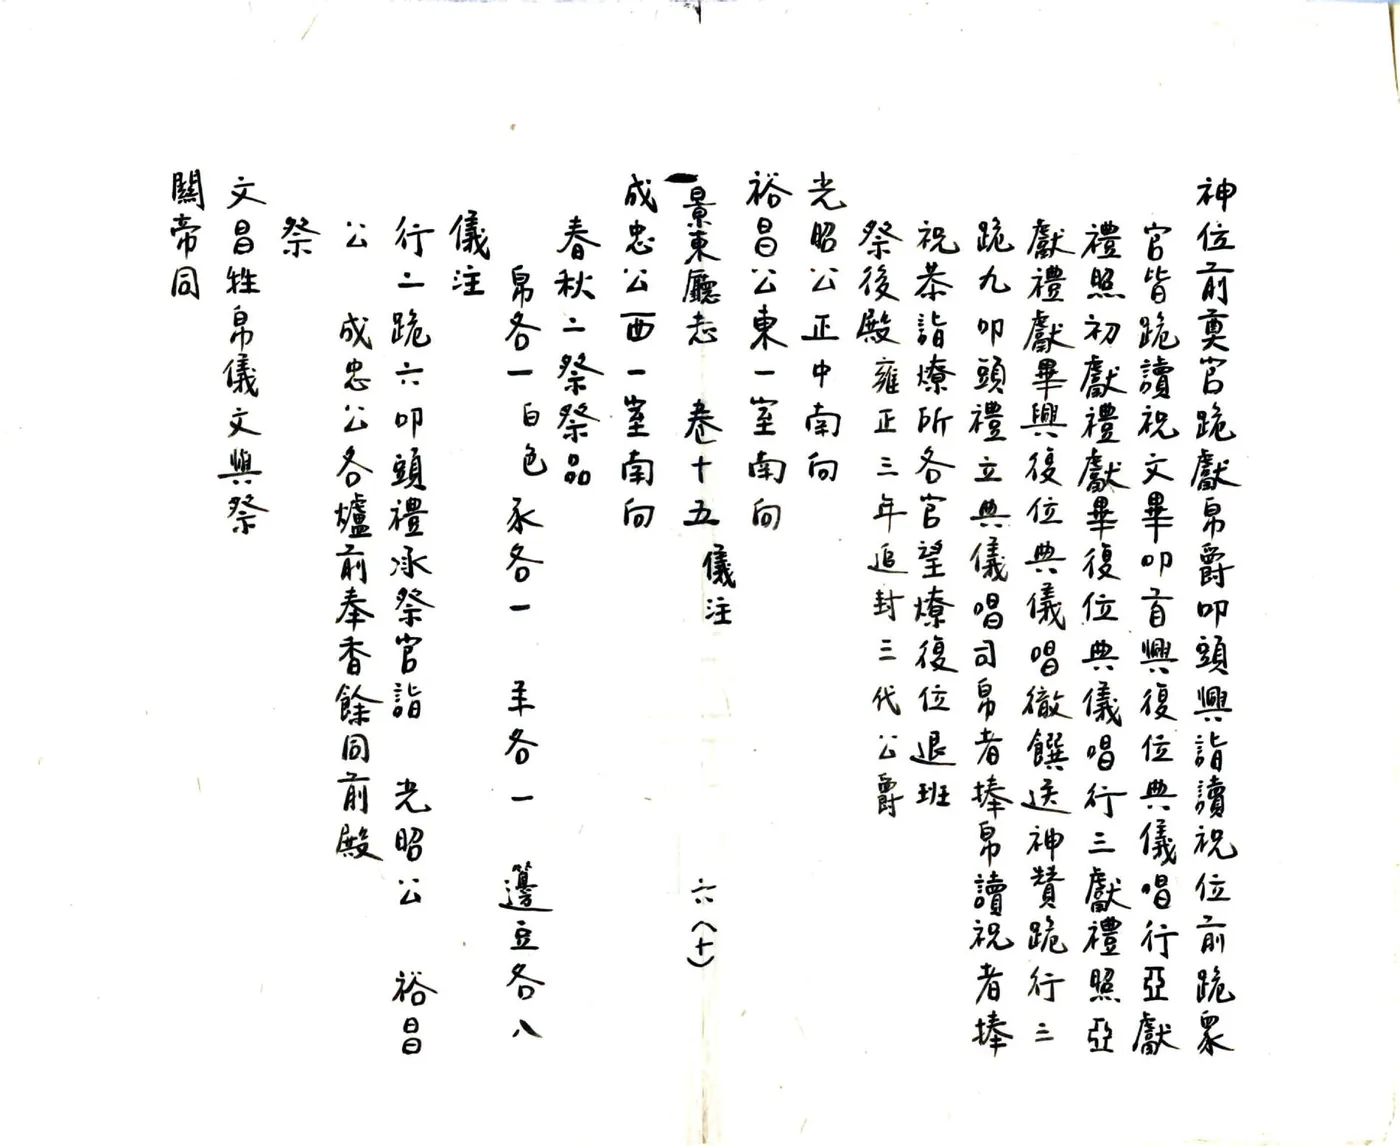 神位前奠官跪獻帛爵叩頭興詣讀祝位前跪衆
官皆跪讀祝文畢叩首興復位典儀唱行亞獻
禮照初獻禮獻畢復位典儀唱行三獻禮照亞
獻禮獻畢興復位典儀唱徹饌送神贊跪行三
跪九叩頭禮立典儀唱司帛者捧帛讀祝者捧
祝恭詣燎所各官望燎復位退班
祭後殿雍正三年追封三代公爵
光昭公正中南向
裕昌公東一室南向
景東廳志 卷十五 儀注 六(十)
成忠公西一室南向
春秋二祭祭品
帛各一白色 豕各一 羊各一 籩豆各八
儀注
行二跪六叩頭禮承祭官詣 光昭公 裕昌
公 成忠公各爐前奉香餘同前殿
祭
文昌牲帛儀文與祭
關帝同